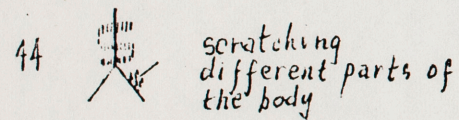 44 scratching
different parts of
the body